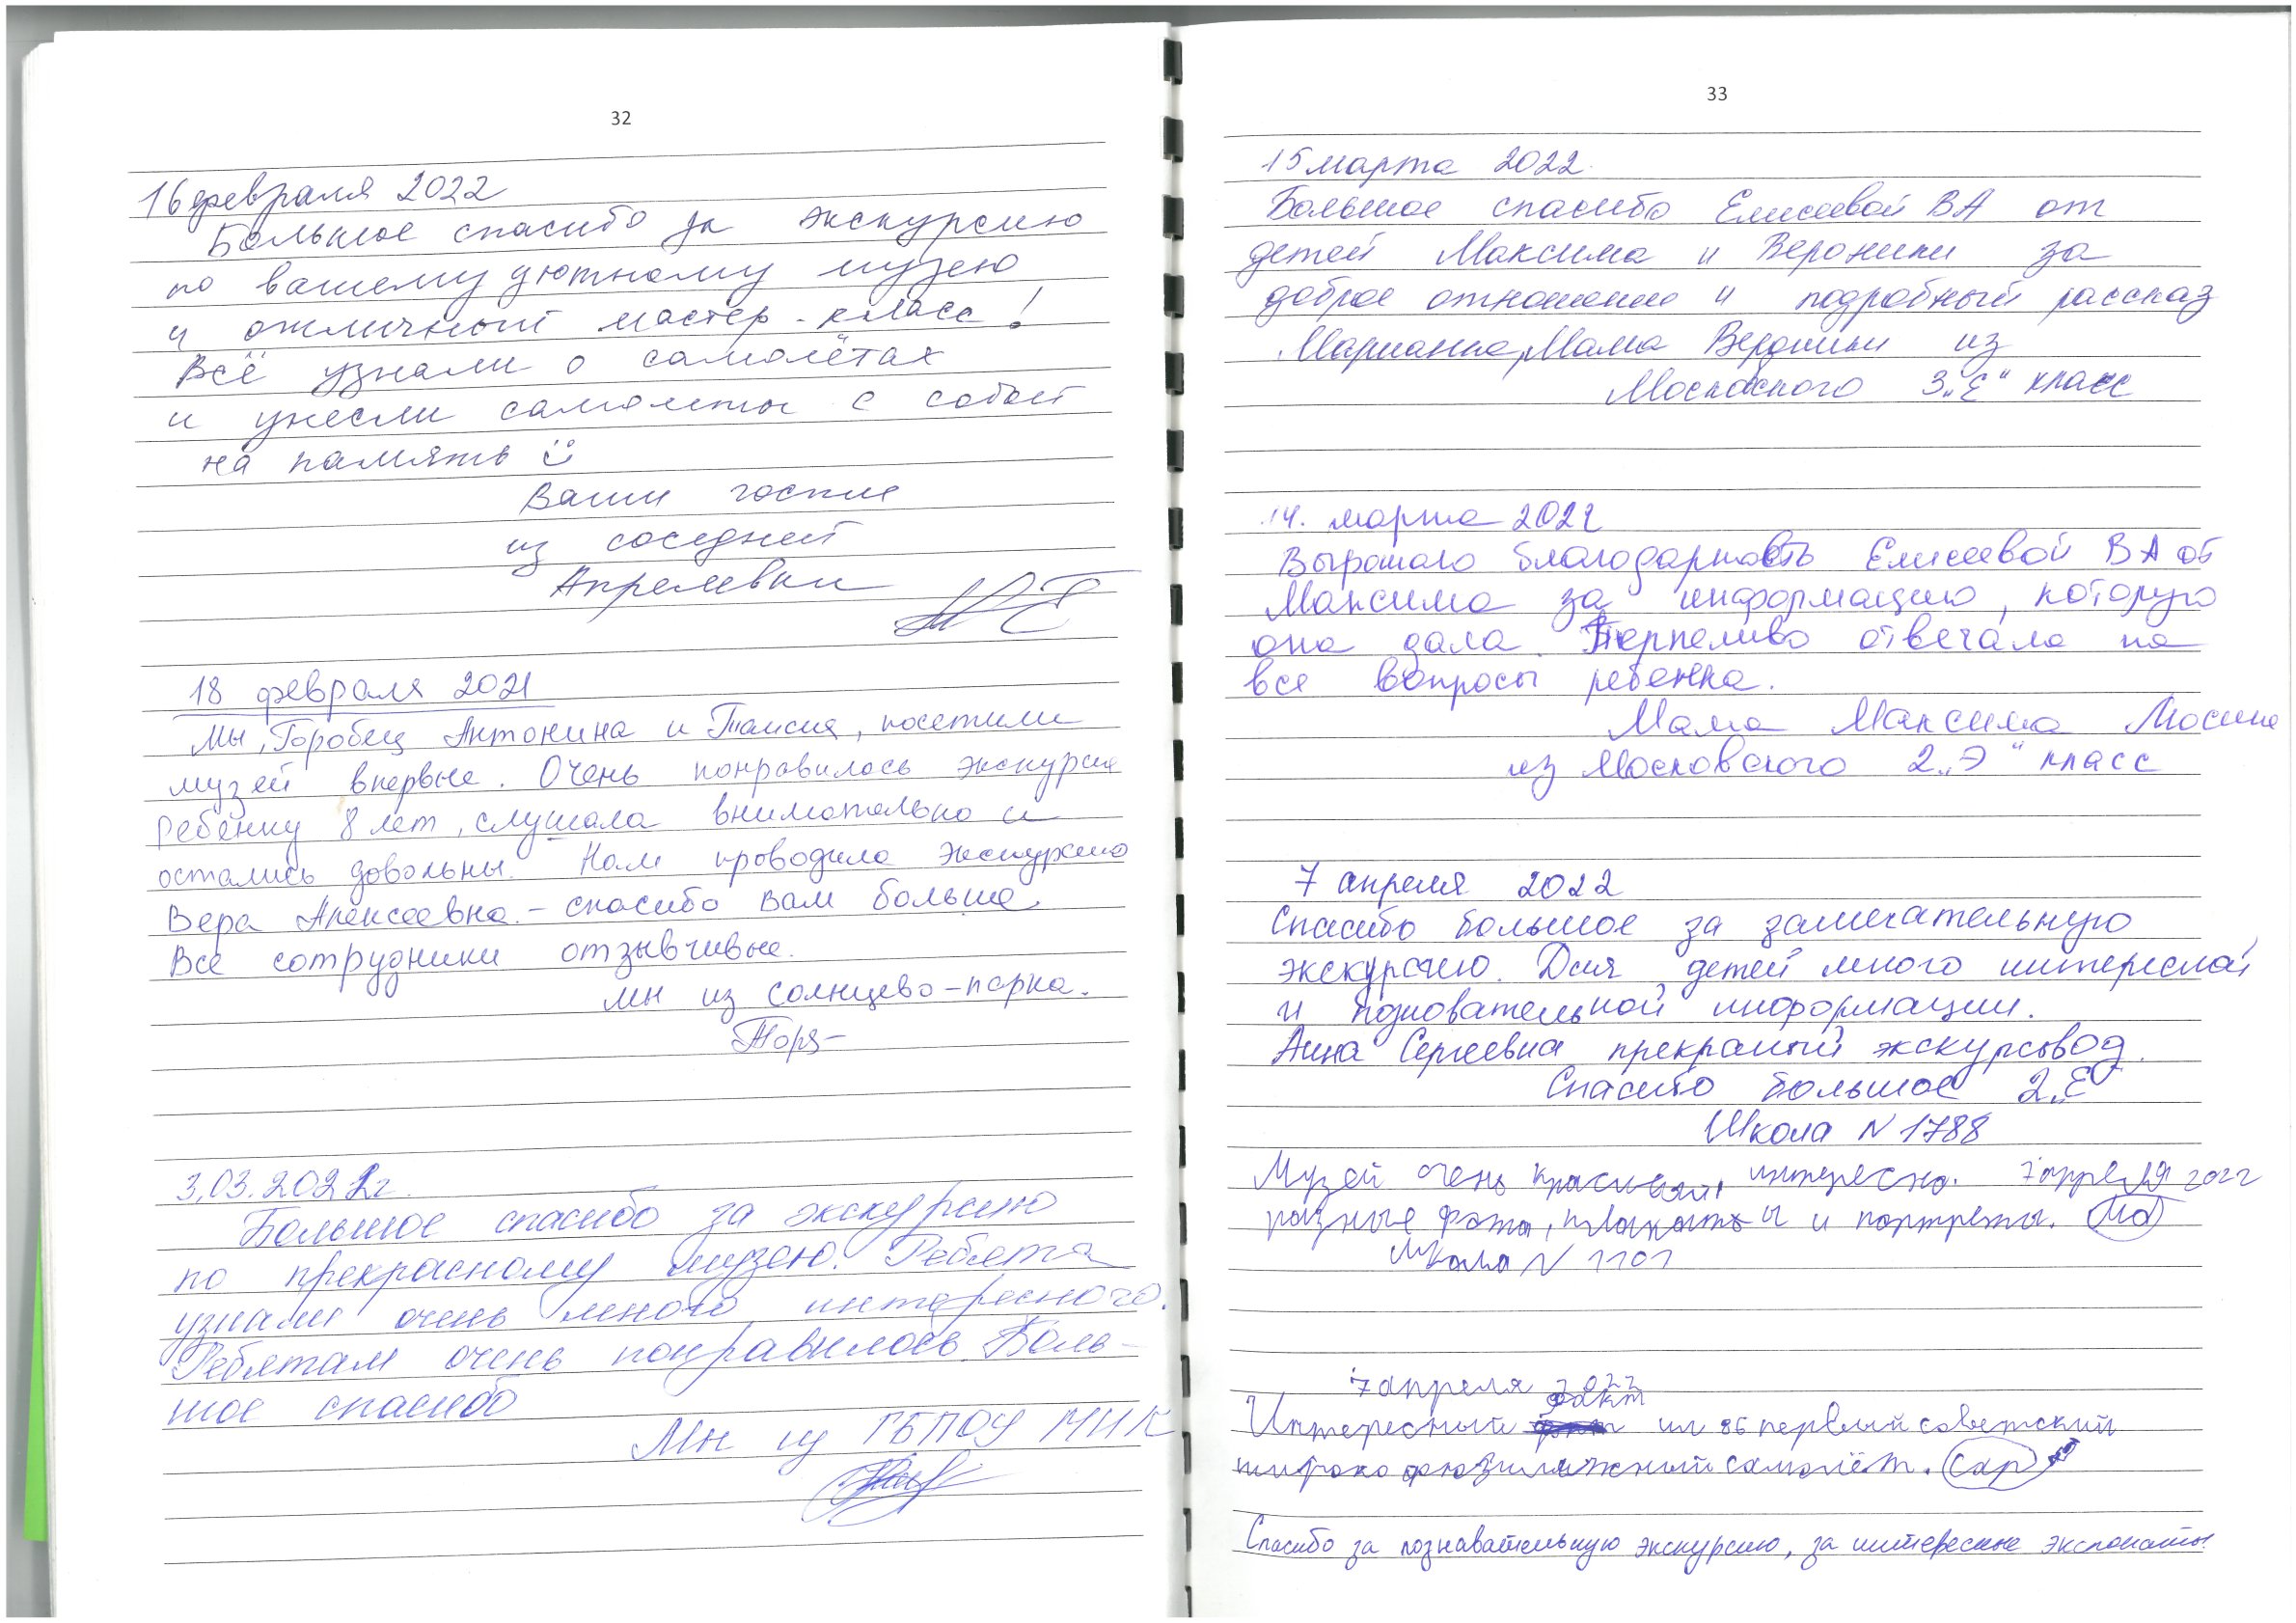 32
16 февраля 2022
Большое спасибо за экскурсию
по вашему уютному музею
и отличный мастер-класс!
Всё узнали о самолётах
и унесли самолеты с собой
на память
Ваши гости
из соседней
Апрелевки
18 февраля 2021
Мы, Горобец Антонина и Таисия, посетили
музей впервые. Очень понравилось экскурсия
ребенку 8 лет, слушала внимательно и
остались довольны. Нам проводила экскурсию
Вера Алексеевна. – спасибо вам больше.
Все сотрудники отзывчивые.
мы из солнцево-парка.
3.03.2022г.
Большое спасибо за экскурсию
по прекрасному музею. Ребята
узнали очень много интересного.
Ребятам очень понравилось. Боль-
шое спасибо
Мы из ГБПОУ МИК
33
15 марта 2022
Большое спасибо Елисеевой ВА от
детей Максима и Вероники за
доброе отношение и подробный рассказ
Марианна, Мама Вероники из
Московского 3„Е“ класс
14. марта 2022
Выражаю благодарность Елисеевой ВА от
Максима за информацию, которую
она дала. Терпеливо отвечала на
все вопросы ребенка.
Мама Максима
из Московского 2„Э“ класс
7 апреля 2022
Спасибо большое за замечательную
экскурсию. Для детей много интересной
и познавательной информации.
Анна Сергеевна прекрасный экскурсовод.
Спасибо большое 2„Е
Школа N 1788
Музей очень красивый, интересно. 7 апреля 2022
разные фото, плакаты и портреты.
Школа N 1101
7 апреля 2022
факт
Интересный ил 86 первый советский
широко фюзиляжный самолёт.
Спасибо за познавательную экскурсию, за интересные экспонаты.